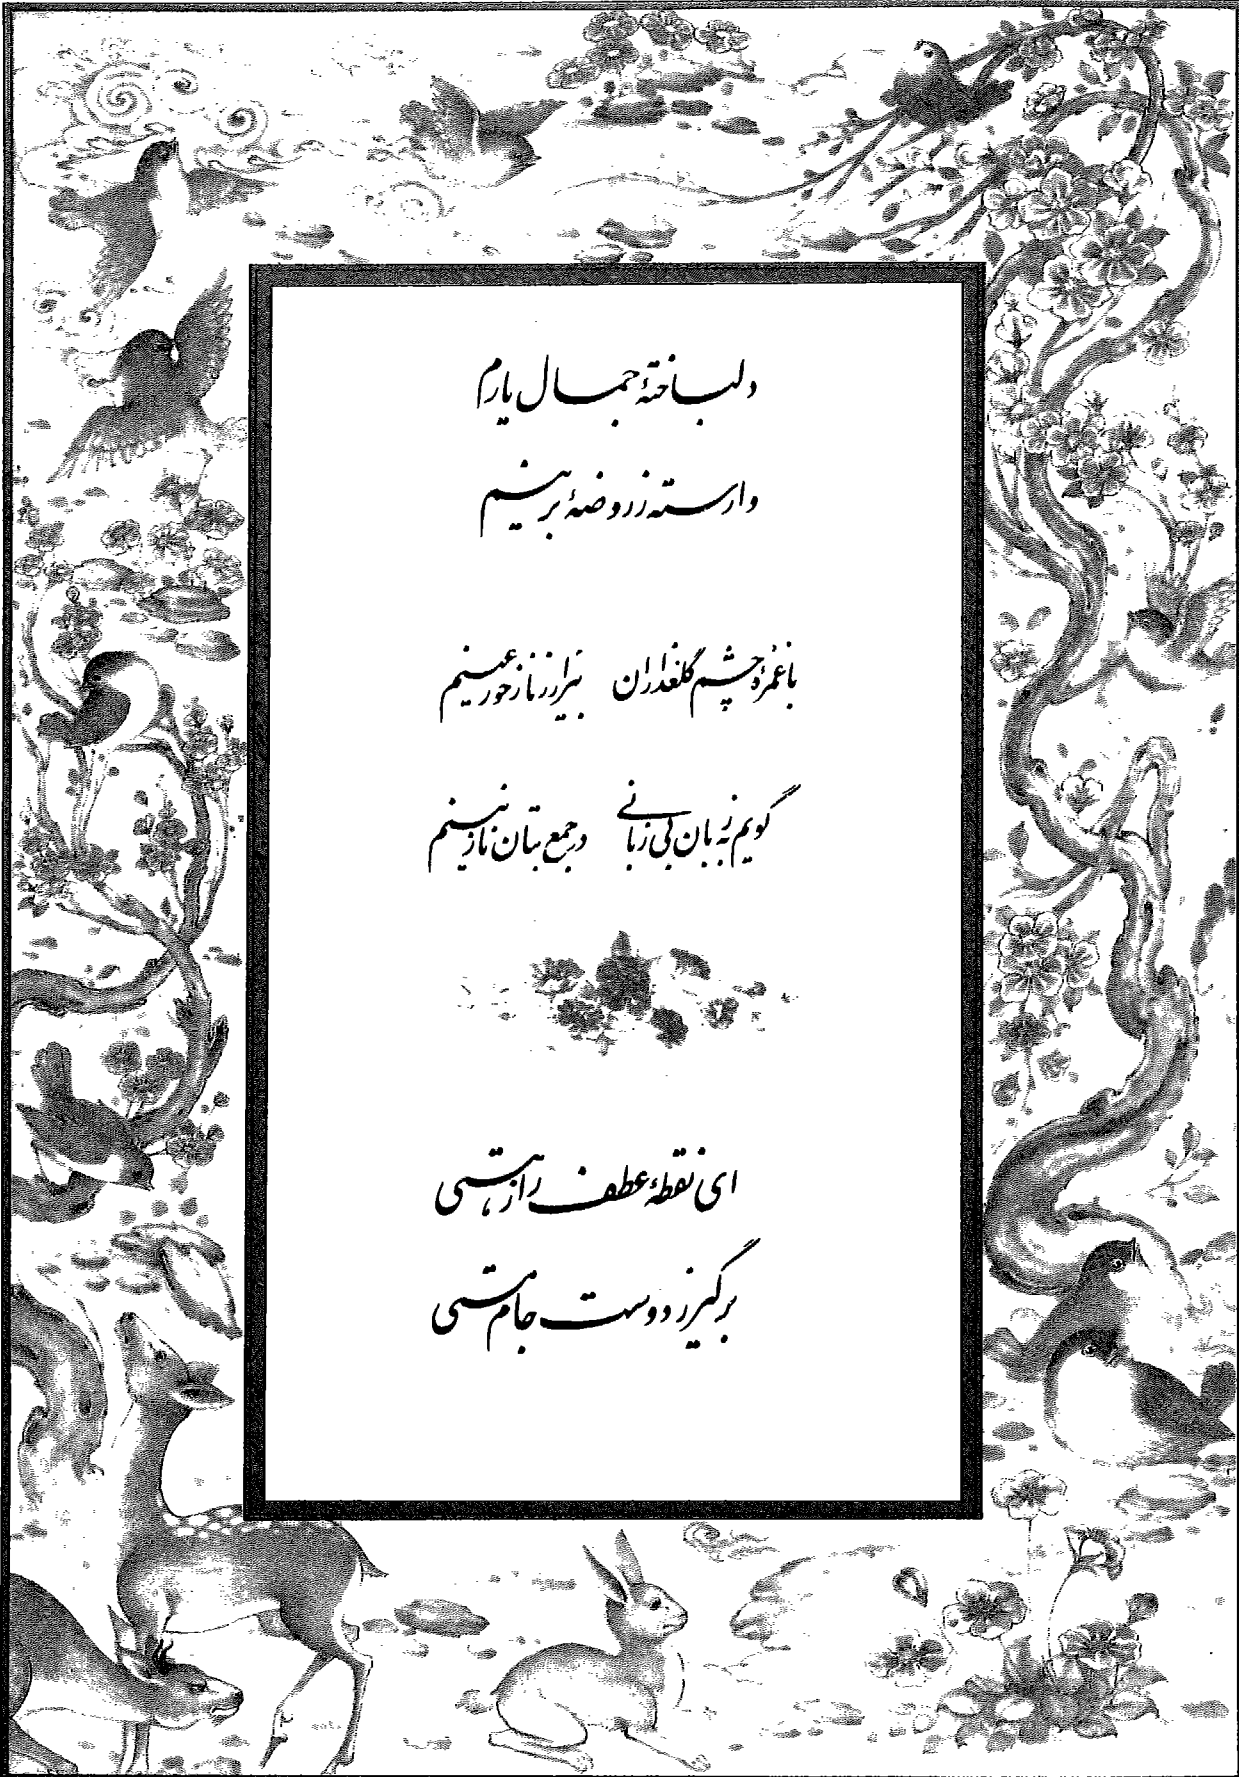 دلباختهٔ جمال یارم
وارسته ز روضهٔ برینم
با غمزهٔ چشم گلعذاران بیزار ز ناز حور عینم
گویم به زبان بی زبانی در جمع بتان نازنینم
ای نقطهٔ عطف راز هستی
برگیر ز دوست جام مستی